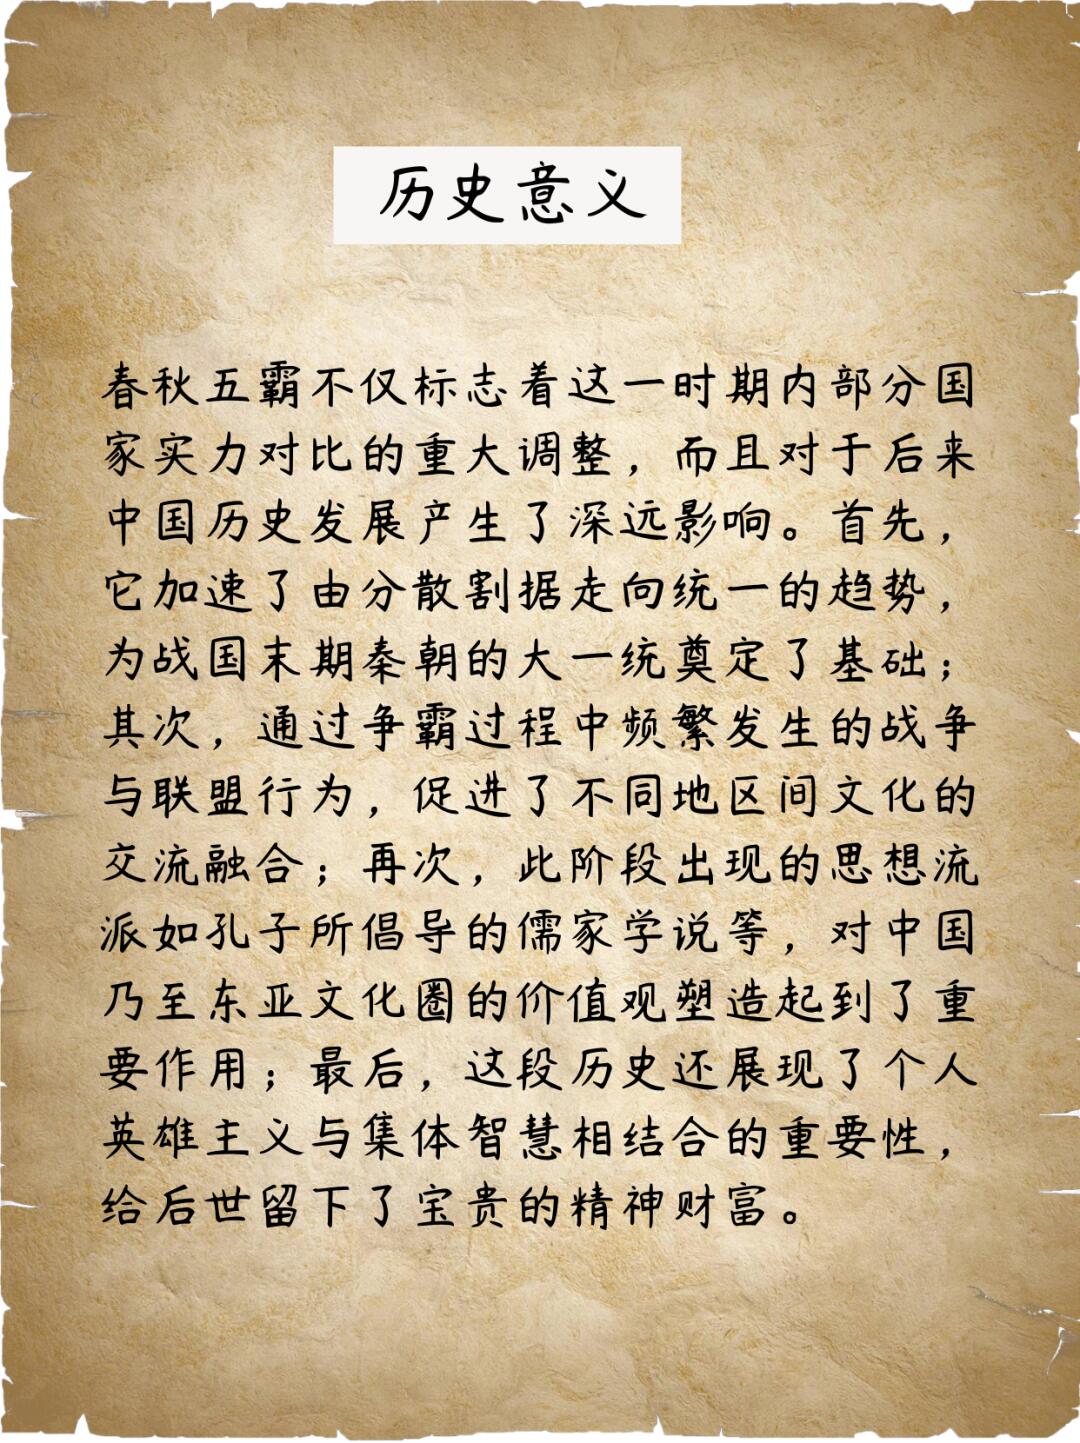 历史意义
春秋五霸不仅标志着这一时期内部分国
家实力对比的重大调整，而且对于后来
中国历史发展产生了深远影响。首先，
它加速了由分散割据走向统一的趋势，
为战国末期秦朝的大一统奠定了基础；
其次，通过争霸过程中频繁发生的战争
与联盟行为，促进了不同地区间文化的
交流融合；再次，此阶段出现的思想流
派如孔子所倡导的儒家学说等，对中国
乃至东亚文化圈的价值观塑造起到了重
要作用；最后，这段历史还展现了个人
英雄主义与集体智慧相结合的重要性，
给后世留下了宝贵的精神财富。